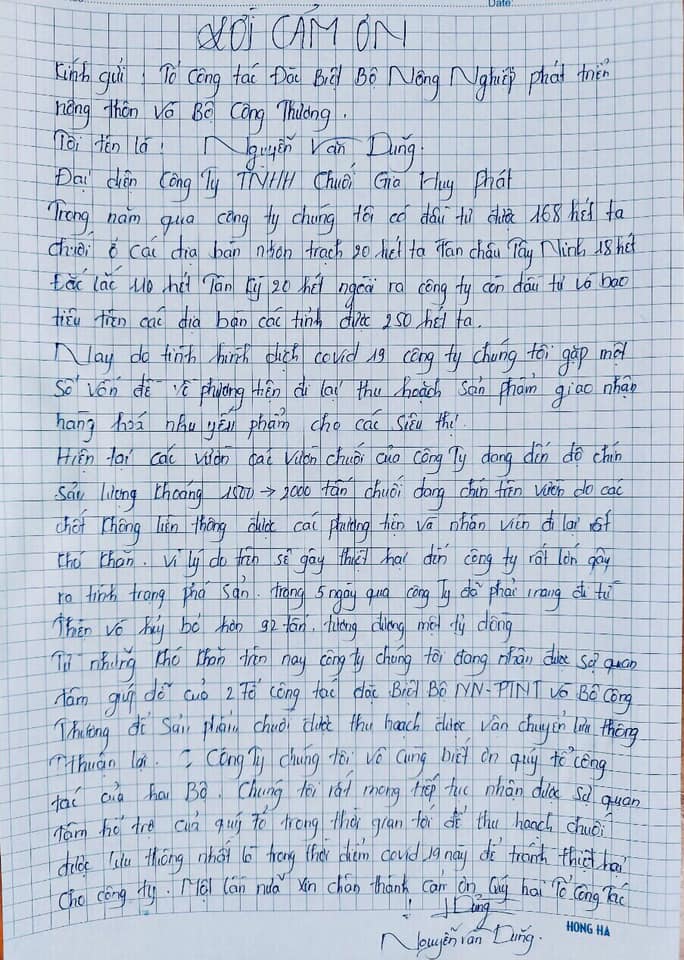 Date:
LỜI CẢM ƠN
Kính gửi : Tổ Công tác Đặc Biệt Bộ Nông Nghiệp phát triển
nông thôn và Bộ Công Thương.
Tôi tên là : Nguyễn Văn Dũng.
Đại diện Công Ty TNHH Chuối Gia Huy Phát
Trong năm qua công ty chúng tôi có đầu tư được 168 hét ta
chuối ở các địa bàn nhơn trạch 20 hét ta Tân châu Tây Ninh 18 hét
Đắc lắc 110 hét Tân Kỳ 20 hét ngoài ra công ty còn đầu tư và bao
tiêu trên các địa bàn các tỉnh được 250 hét ta.
Nay do tình hình dịch covid 19 công ty chúng tôi gặp một
số vấn đề về phương tiện đi lại thu hoạch sản phẩm giao nhận
hàng hoá nhu yếu phẩm cho các siêu thị.
Hiện tại các vườn các vườn chuối của Công Ty đang đến độ chín
sản lượng khoảng 1500 → 2000 tấn chuối đang chín trên vườn do các
chốt không liên thông được các phương tiện và nhân viên đi lại rất
khó khăn. Vì lý do trên sẽ gây thiệt hại đến công ty rất lớn gây
ra tình trạng phá sản. trong 5 ngày qua công Ty đã phải mang đi từ
thiện và hủy bỏ hơn 92 tấn. tương đương một tỷ đồng
Từ những khó khăn trên nay công ty chúng tôi đang nhận được sự quan
tâm giúp đỡ của 2 Tổ công tác đặc Biệt Bộ NN-PTNT và Bộ Công
Thương để sản phẩm chuối được thu hoạch được vận chuyển lưu thông
Thuận lợi. : Công Ty chúng tôi vô cùng biết ơn quý tổ công
tác của hai Bộ. Chúng tôi rất mong tiếp tục nhận được sự quan
tâm hổ trợ của quý Tổ trong thời gian tới để thu hoạch chuối
được lưu thông nhất là trong thời điểm covid 19 này để tránh thiệt hại
cho công ty. Một lần nữa xin chân thành cảm ơn Quý hai Tổ Công Tác
Dũng
Nguyễn văn Dũng.
HONG HA